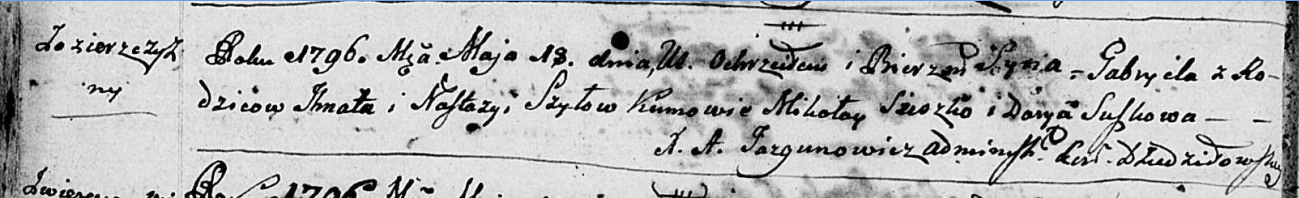 Zozierzczyz
ny
Roku 1796. Mca Maja 18. dnia, Ut. Ochrzciłem i Bierzm Syna Gabryela z Ro-
dziców Ihnata i Nastazyi Szyłow Kumowie Mikołay Suszko i Darya Suszkowa — -
X. A. Jazgunowicz Administ. Cerk. Dziedziłowskiey
Roku 1796 Mca